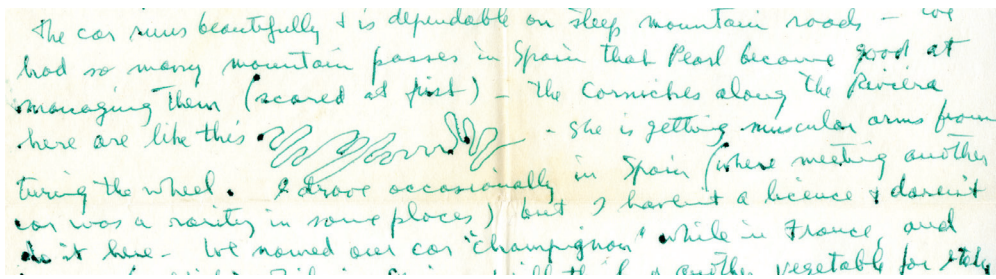 The car runs beautifully & is dependable on steep mountain roads – We
had so many mountain passes in Spain that Pearl became good at
managing them (scared at first) – The Corniches along the Riviera
here are like this – She is getting muscular arms from
turing the wheel. I drove occasionally in Spain (where meeting another
car was a rarity in some places) but I haven't a licence & daren't
do it here – We named our car "Champignon" while in France, and
another vegetable for Italy